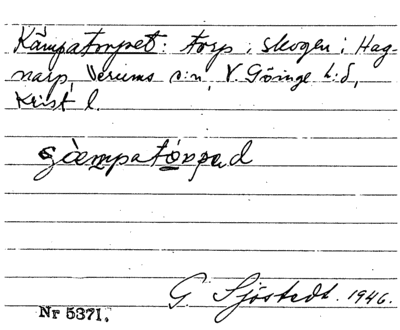 Kämpatorpet: torp i skogen i Hag-
narp, Verums s:n, V. Göinge h:d,
Krist l.
gàmpatórpəd
G. Sjöstedt. 1946.
Nr 5371.